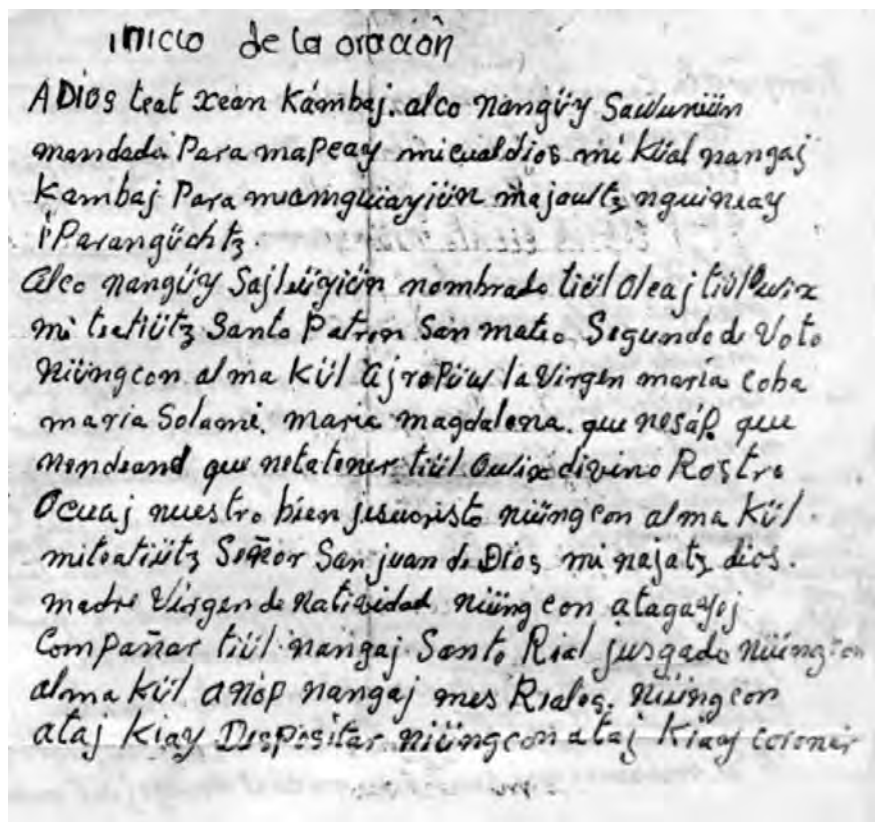 inicio de la oración
ADios teat xean Kámbaj. alco nangüy Sawunüün
mandada Para mapeay micualdios mi Küal nangaj
Kambaj Para muamguiayiün majaultz nguineay
i Parangüchtz.
alco nangüy Sajlüyiün nombrado tiül Oleaj tiül Owix
mi teatiütz Santo Patron San mateo Segundo de Voto
Niüngcon alma Kül ajropüw la Virgen maría Coba
maría Solamé. maria magdalena. que nesáp que
nendeand que netatener tiül Owix divino Rostro
Ocuaj nuestro bien jesucristo niüng con alma Kül
miteatiütz Señor San juan de Dios mi najatz dios.
madre Virgen de natividad niüng con atagayej
Compañar tiül nangaj Santo Rial jusgado niüng con
alma Kül anop nangaj mes Riales. Niüng con
ataj Kiay Despositar niüng con ataj Kiay coroner